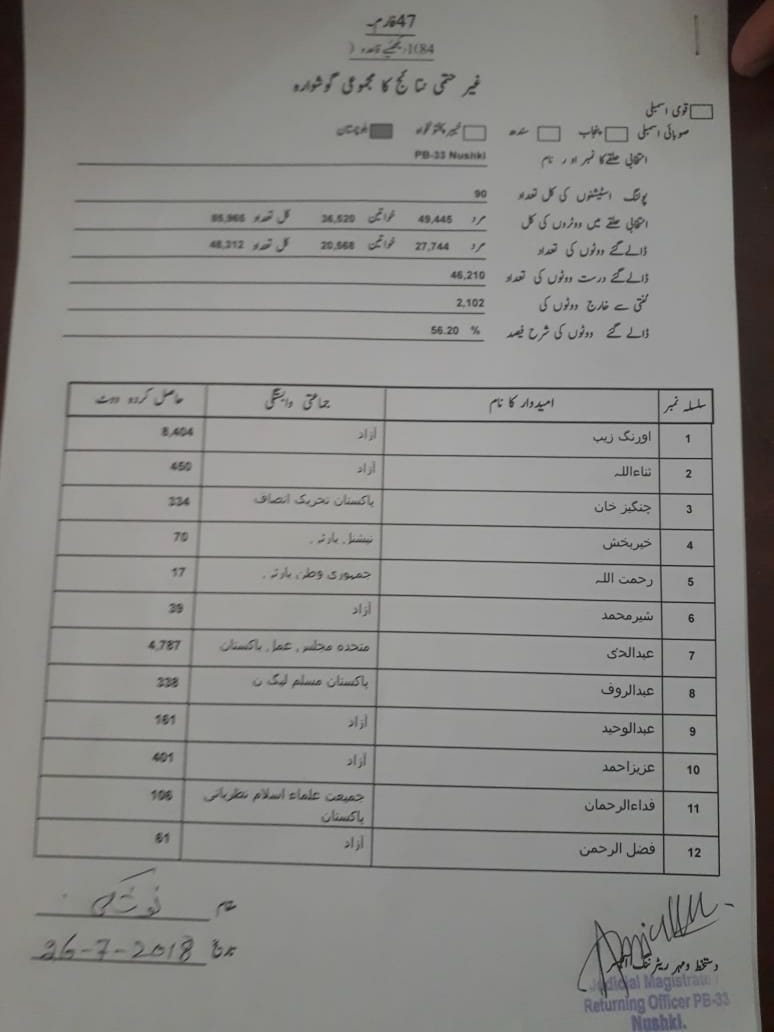 فارم 47
(دیکھئے قاعدہ 84(1
غیر حتمی نتائج کا مجموعی گوشوارہ
قومی اسمبلی
صوبائی اسمبلی پنجاب سندھ خیبر پختونخواہ بلوچستان
انتخابی حلقے کا نمبر اور نام PB-33 Nushki
پولنگ اسٹیشنوں کی کل تعداد 90
انتخابی حلقے میں ووٹروں کی کل مرد 49,445 خواتین 36,520 کل تعداد 85,965
ڈالے گئے ووٹوں کی تعداد مرد 27,744 خواتین 20,568 کل تعداد 48,312
ڈالے گئے درست ووٹوں کی تعداد 46,210
گنتی سے خارج ووٹوں کی 2,102
ڈالے گئے ووٹوں کی شرح فیصد 56.20 %
سلسلہ نمبر امیدوار کا نام جماعتی وابستگی حاصل کردہ ووٹ
1 اورنگ زیب آزاد 8,404
2 ثناءاللہ آزاد 450
3 چنگیز خان پاکستان تحریک انصاف 334
4 خیربخش نیشنل پارٹی 70
5 رحمت اللہ جمہوری وطن پارٹی 17
6 شیرمحمد آزاد 39
7 عبدالحئ متحدہ مجلس عمل پاکستان 4,787
8 عبدالروف پاکستان مسلم لیگ ن 338
9 عبدالوحید آزاد 161
10 عزیزاحمد آزاد 401
11 فداءالرحمان جمیعت علماء اسلام نظریاتی پاکستان 106
12 فضل الرحمن آزاد 61
مقام نوشکی
تاریخ 26-7-2018
دستخط ومہر ریٹرننگ آفیسر
Judicial Magistrate I
Returning Officer PB-33
Nushki.